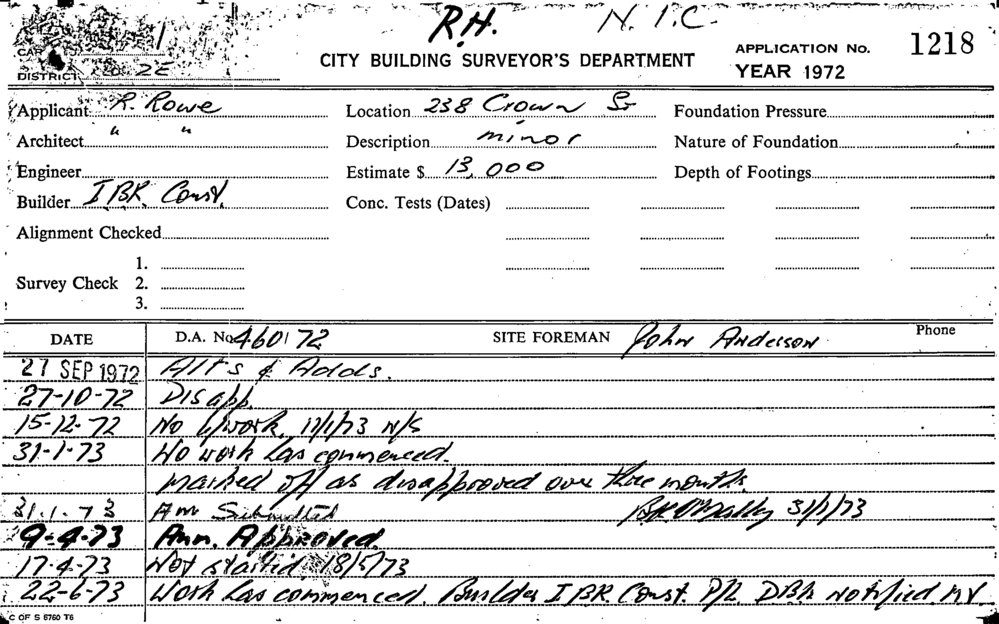 R.H. N.I.C.
CITY BUILDING SURVEYOR'S DEPARTMENT
APPLICATION No. 1218
YEAR 1972
DISTRICT 2E
Applicant R. Rowe
Location 238 Crown St
Foundation Pressure
Architect " "
Description minor
Nature of Foundation
Engineer
Estimate $ 13,000
Depth of Footings
Builder I.B.R. Const.
Conc. Tests (Dates)
Alignment Checked
Survey Check
1.
2.
3.
DATE D.A. No. 460/72 SITE FOREMAN John Anderson Phone
27 SEP 1972 Alt's & Adds.
27-10-72 Disapp.
15-12-72 No work. 12/1/73 N/S
31-1-73 No work has commenced.
marked off as disapproved over three months
31.1.73 Am Submitted B.R. O'Malley 31/1/73
9-4-73 Am. Approved.
17-4-73 Not started 18/5/73
22-6-73 Work has commenced. Builder I.B.R. Const. P/L. notified
C OF S 6760 T6